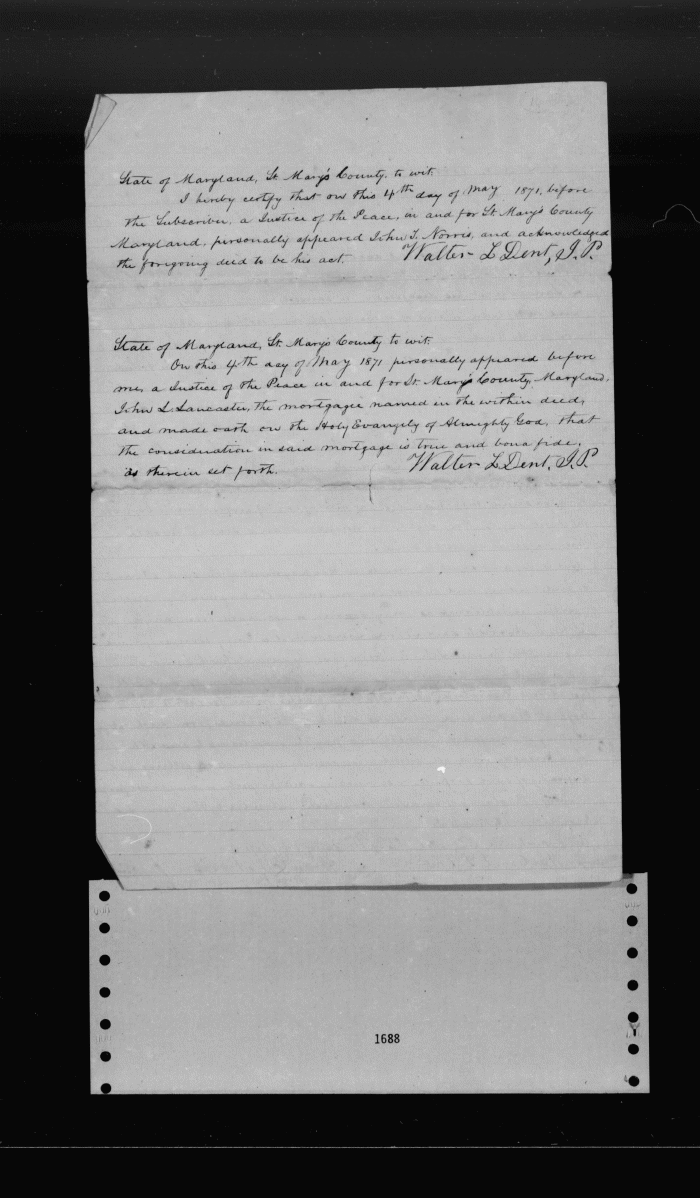 State of Maryland, St. Mary's County, to wit,
I hereby certify that on this 4th day of May 1871, before
the Subscriber, a Justice of the Peace, in and for St. Mary's County
Maryland, personally appeared John T. Norris, and acknowledged
the foregoing deed to be his act. Walter L Dent, J.P.
State of Maryland, St. Mary's County to wit.
On this 4th day of May 1871 personally appeared before
me, a Justice of the Peace in and for St. Mary's County, Maryland,
John L Lancaster, the mortgagee named in the within deed,
and made oath on the Holy Evangely of Almighty God, that
the consideration in said mortgage is true and bona fide,
as therein set forth. Walter L Dent, J.P.
1688